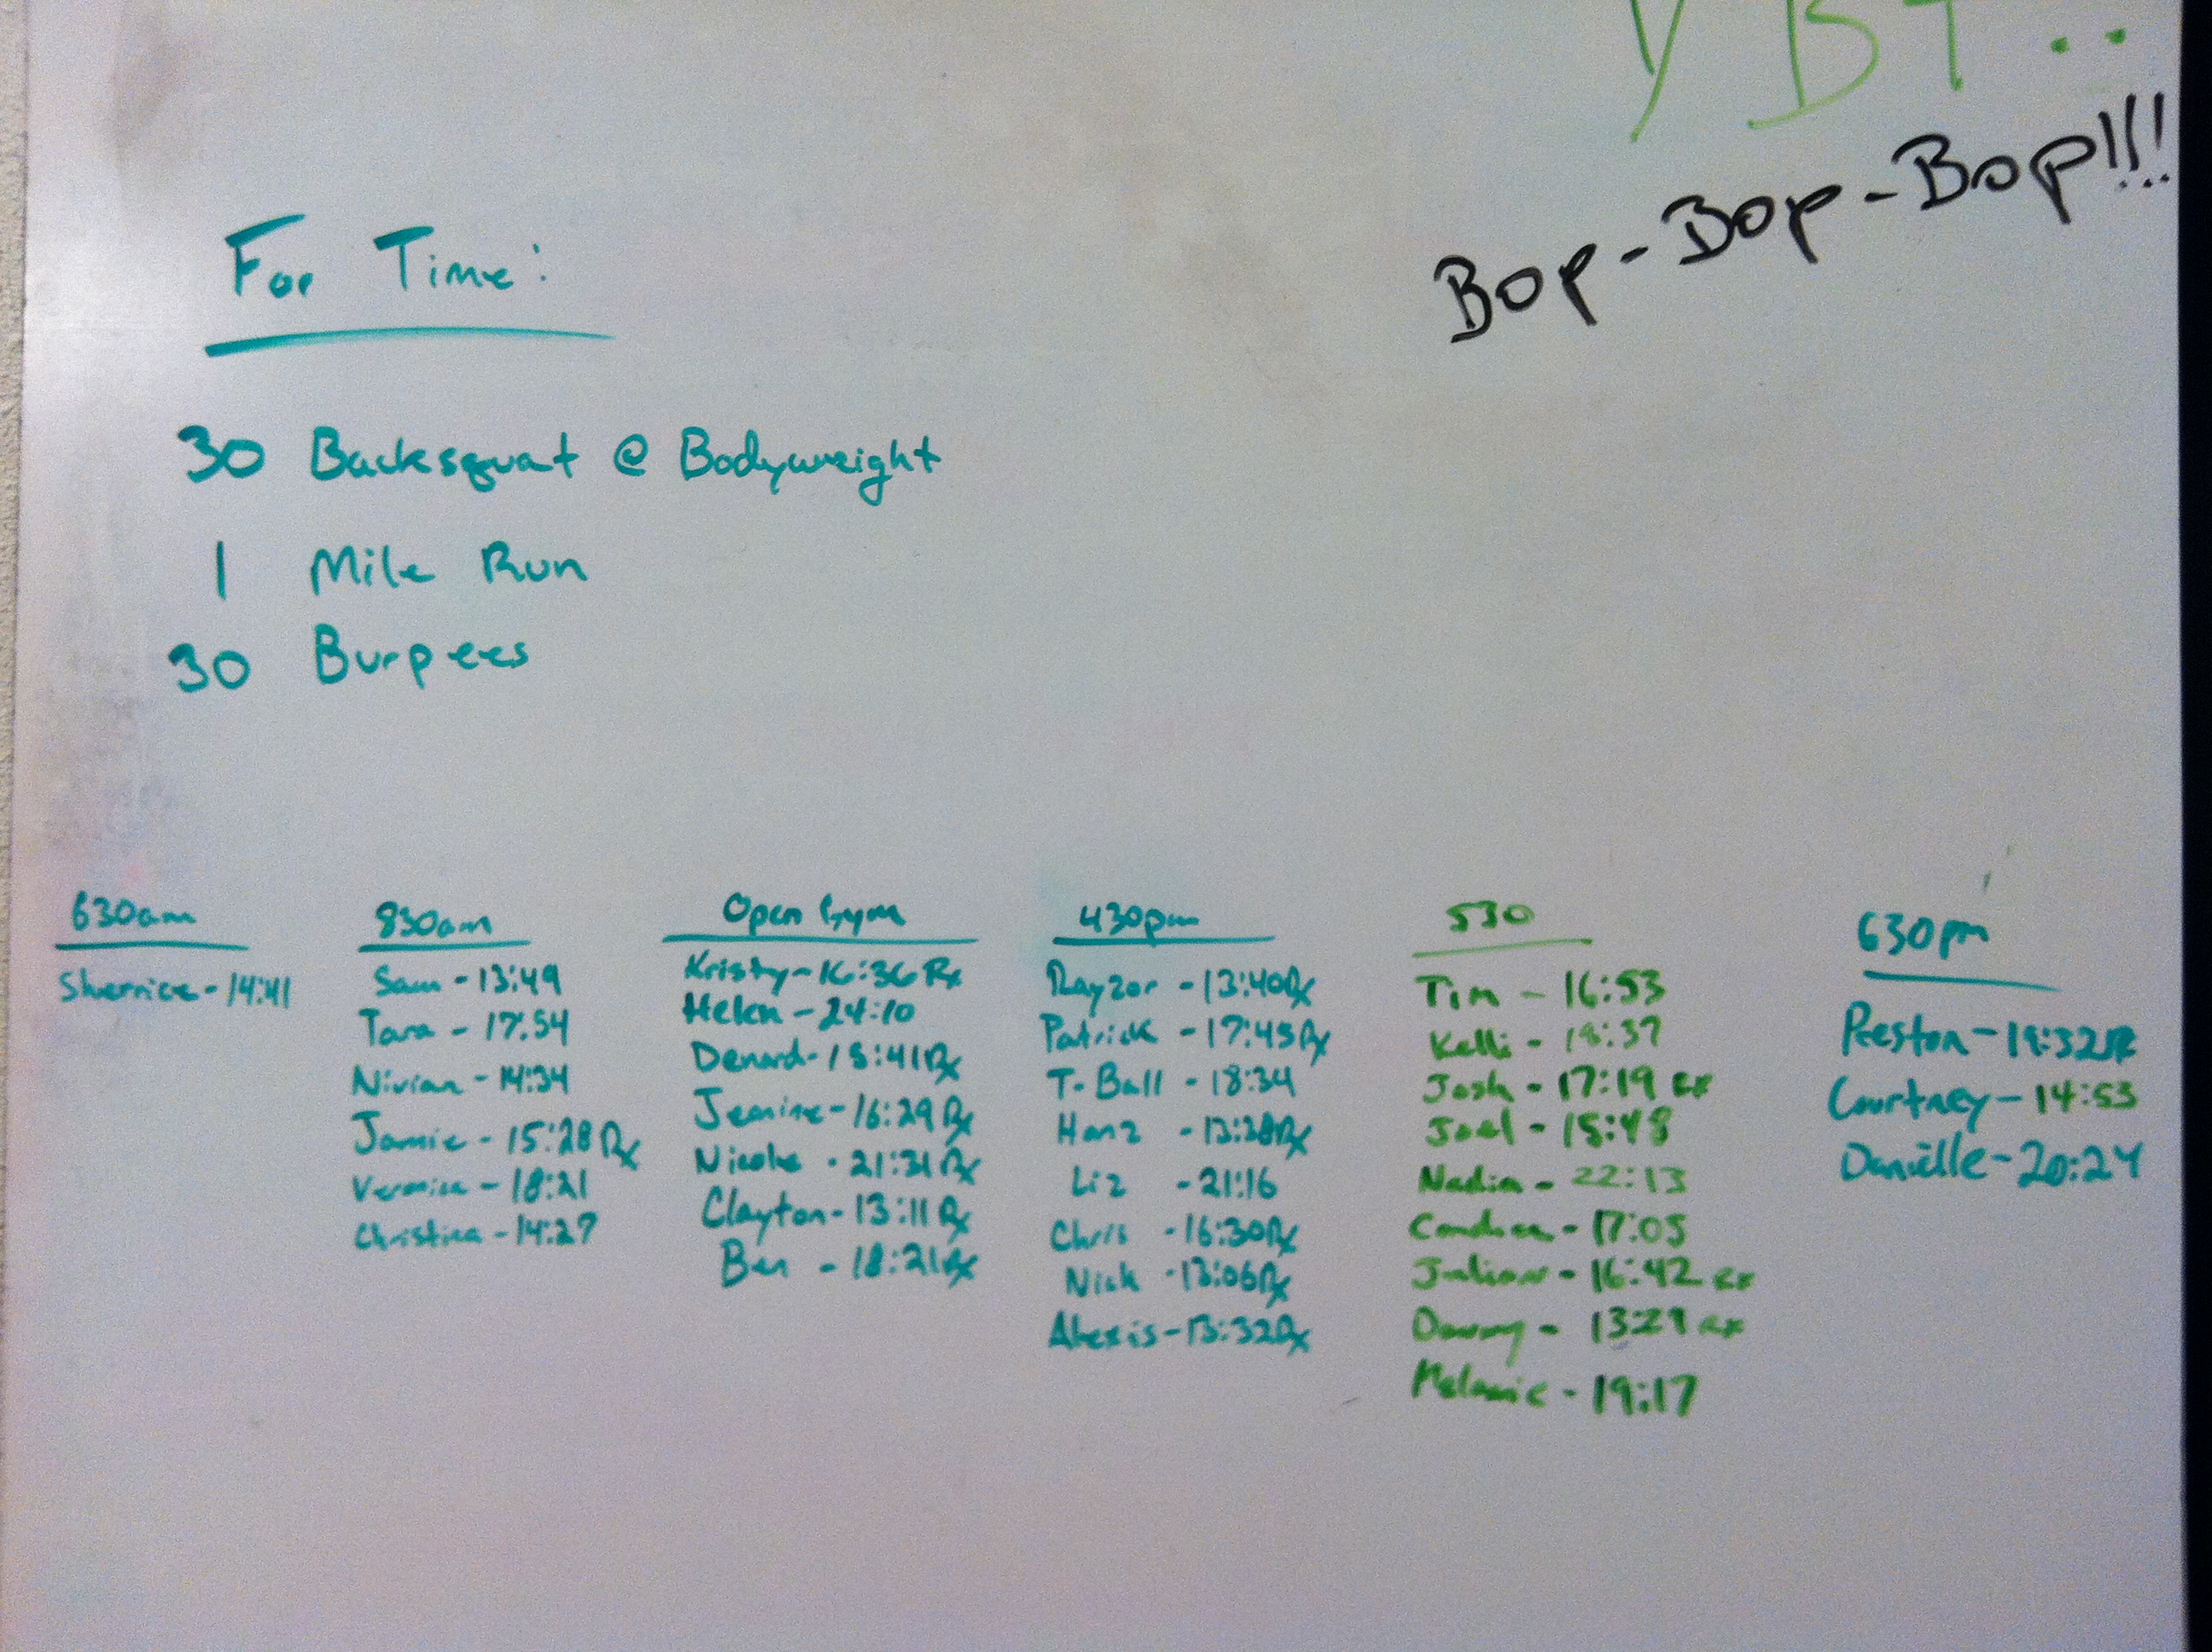 Bop-Bop-Bop!!!
For Time:
30 Backsquat @ Bodyweight
1 Mile Run
30 Burpees
630am
Shernice - 14:41
830am
Sam - 13:49
Tara - 17:54
Nivian - 14:34
Jamie - 15:28 Rx
Veronica - 18:21
Christina - 14:27
Open Gym
Kristy - 16:36 Rx
Helen - 24:10
Denard - 15:41 Rx
Jeanine - 16:29 Rx
Nicole - 21:31 Rx
Clayton - 13:11 Rx
Ben - 18:21 Rx
430pm
Rayzor - 13:40 Rx
Patrick - 17:45 Rx
T-Ball - 18:34
Hanz - 13:28 Rx
Liz - 21:16
Chris - 16:30 Rx
Nick - 13:06 Rx
Alexis - 13:32 Rx
530
Tim - 16:53
Kelli - 18:37
Josh - 17:19 Rx
Joel - 15:48
Nadia - 22:13
17:05
Julian - 16:42 Rx
Danny - 13:29 Rx
Melanie - 19:17
630pm
Preston - 19:32 Rx
Courtney - 14:53
Danielle - 20:24